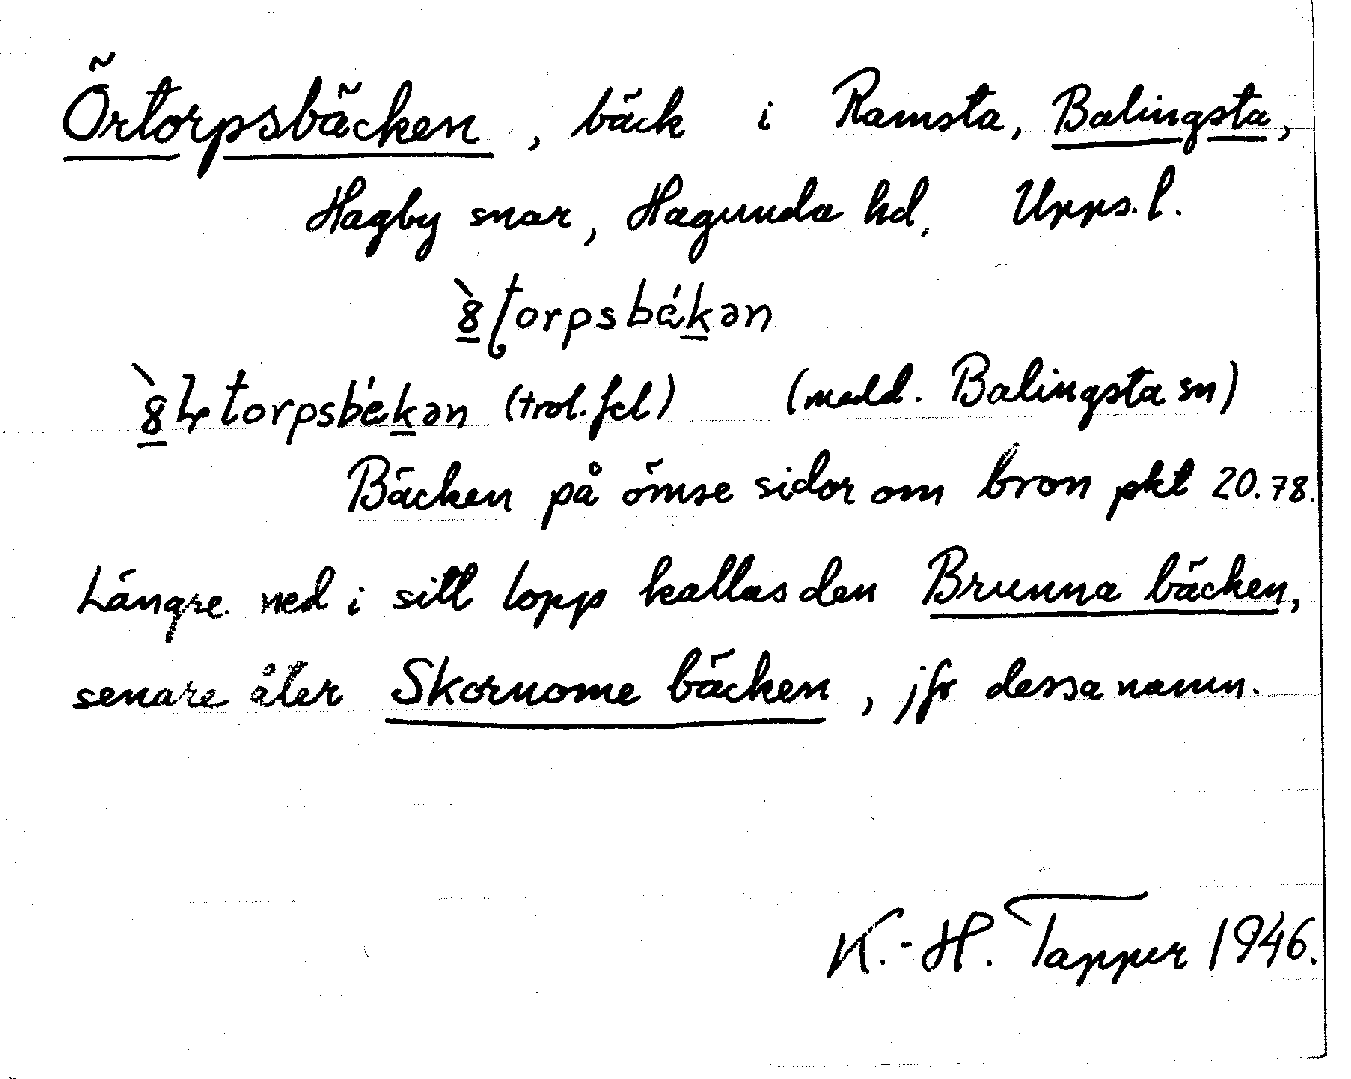 Örtorpsbäcken, bäck i Ramsta, Balingsta,
Hagby snar, Hagunda hd. Upps. l.
`8ʈorpsbékən
`8ɽtorpsbékən (trol. fel) (medd. Balingsta sn)
Bäcken på ömse sidor om bron pkt 20.78.
Längre ned i sitt lopp kallas den Brunna bäcken,
senare åter Skornome bäcken, jfr dessa namn.
K.-H. Tapper 1946.